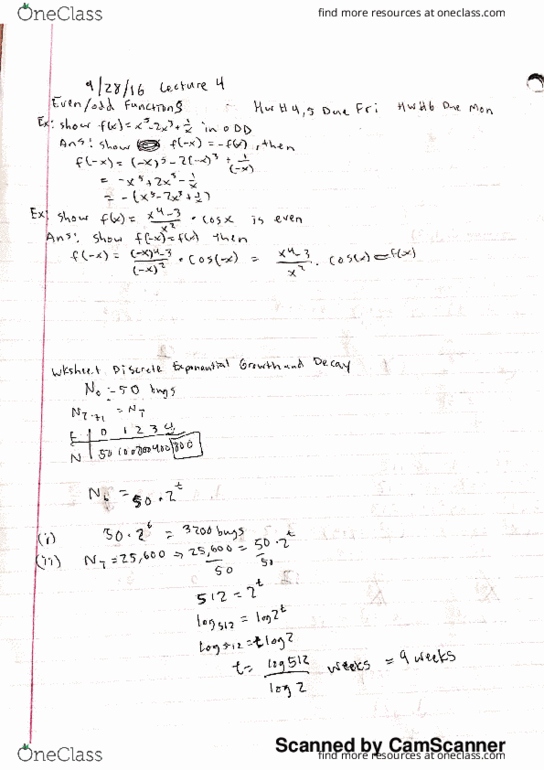 OneClass find more resources at oneclass.com
9/28/16 Lecture 4
Even/odd Functions HW#4,5 Due Fri HW#6 Due Mon
Ex: show f(x)=x⁵-2x³+1/x in ODD
Ans: show f(-x) = -f(x), then
f(-x) = (-x)⁵-2(-x)³+1/(-x)
= -x⁵+2x³-1/x
= -(x⁵-2x³+1/x)
Ex: show f(x) = (x⁴-3)/x² · cosx is even
Ans: show f(-x)=f(x) then
f(-x) = ((-x)⁴-3)/(-x)² · cos(-x) = (x⁴-3)/x² · cos(x) = f(x)
Wksheet Discrete Exponential Growth and Decay
N₀ = 50 bugs
= N_T
t | 0 1 2 3 4
N | 50 100 200 400 800
N_t = 50·2^t
(i) 50·2⁶ = 3200 bugs
(ii) N_T = 25,600 ⇒ 25,600/50 = 50·2^t/50
512 = 2^t
log 512 = log 2^t
log 512 = t log 2
t = log 512/log 2 weeks = 9 weeks
Scanned by CamScanner
OneClass find more resources at oneclass.com